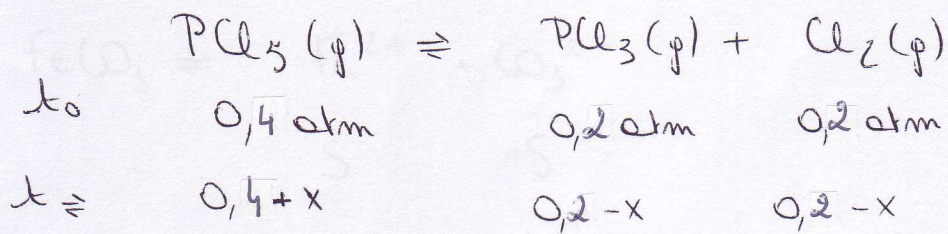 PCl₅ (g) ⇌ PCl₃ (g) + Cl₂ (g)
t₀ 0,4 atm 0,2 atm 0,2 atm
t⇌ 0,4+x 0,2-x 0,2-x